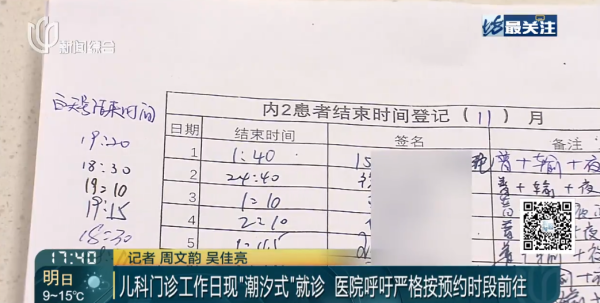 新闻综合
最关注
白天号结束时间
内2患者结束时间登记（11）月
日期 结束时间 签名 备注
19:20
1 1:40 普+输+夜
18:30
2 24:40 普+输+夜
19:10
3 1:10
19:15
4 2:10
18:30
5
17:40 记者 周文韵 吴佳亮
明日
9~15℃
儿科门诊工作日现"潮汐式"就诊 医院呼吁严格按预约时段前往